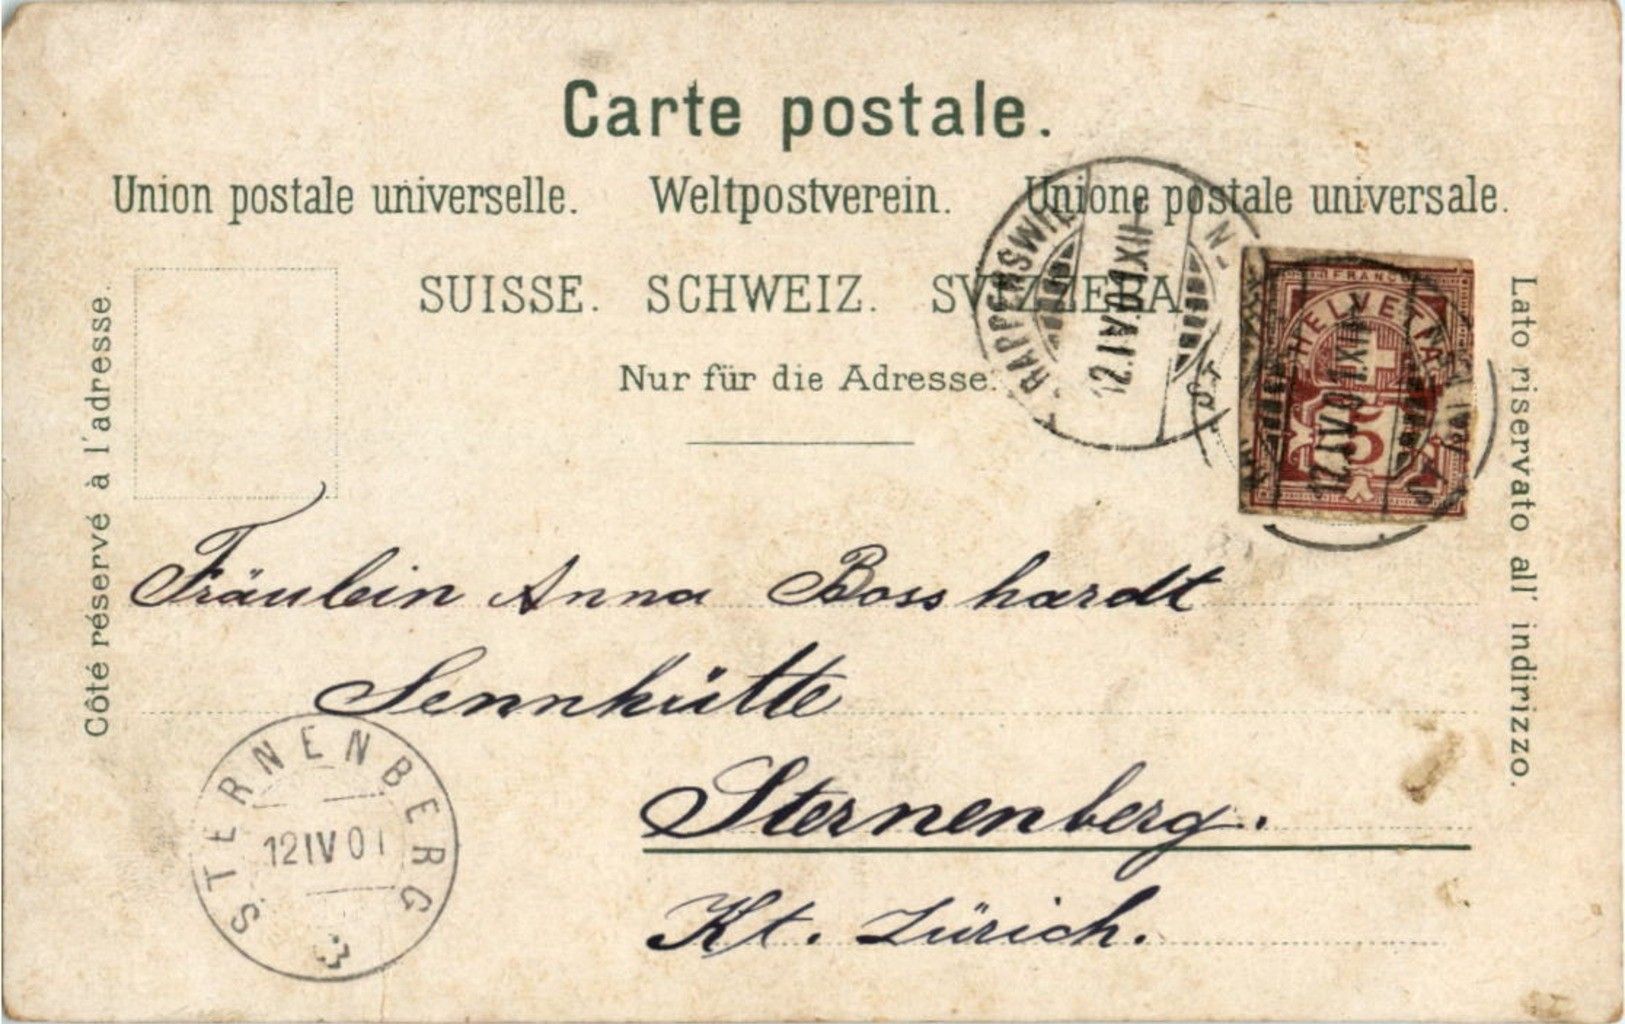 Carte postale.
Union postale universelle. Weltpostverein. Unione postale universale.
SUISSE. SCHWEIZ. SVIZZERA
Nur für die Adresse.
Côté réservé à l'adresse.
Lato riservato all' indirizzo.
RAPPERSWIL
12.IV.01.XII
FRANCO
HELVETIA
12.IV.01.XII
5
Fräulein Anna Bosshardt
Sennhütte
Sternenberg.
Kt. Zürich.
STERNENBERG
12 IV 01